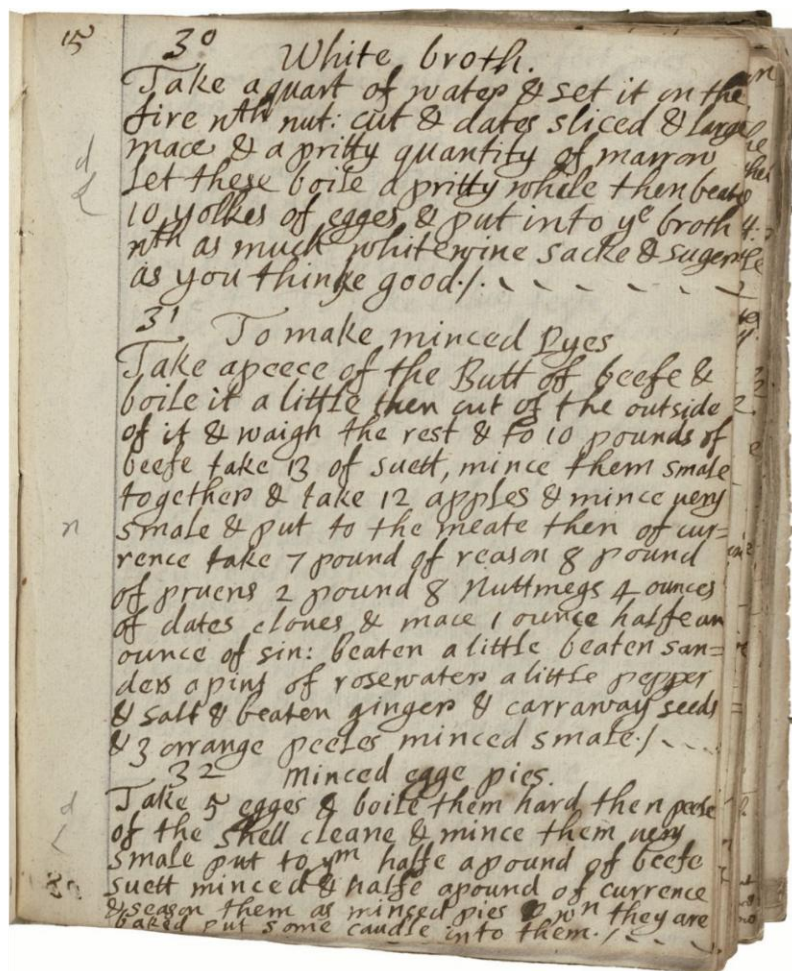 15
30 White broth.
Take a quart of water & set it on the
fire wth nut: cut & dates sliced & large
mace & a pritty quantity of marrow
Let these boile a pritty while then beate
10 yolkes of egges & put into ye broth
wth as much whitewine sacke & suger
as you thinke good./.
31 To make minced Pyes
Take a peece of the Butt of beefe &
boile it a little then cut of the outside
of it & waigh the rest & to 10 pounds of
beefe take 13 of suett, mince them smale
together & take 12 apples & mince very
smale & put to the meate then of cur=
rence take 7 pound of reason 8 pound
of pruens 2 pound 8 Nuttmegs 4 ounces
of dates cloves & mace 1 ounce halfe an
ounce of sin: beaten a little beaten san=
ders a pint of rosewater a little pepper
& salt & beaten ginger & carraway seeds
& 3 orrange peeles minced smale./
32 Minced egge pies.
Take 5 egges & boile them hard then peele
of the shell cleane & mince them very
smale put to ym halfe a pound of beefe
suett minced & halfe a pound of currence
& season them as minced pies & wn they are
baked put some caudle into them./